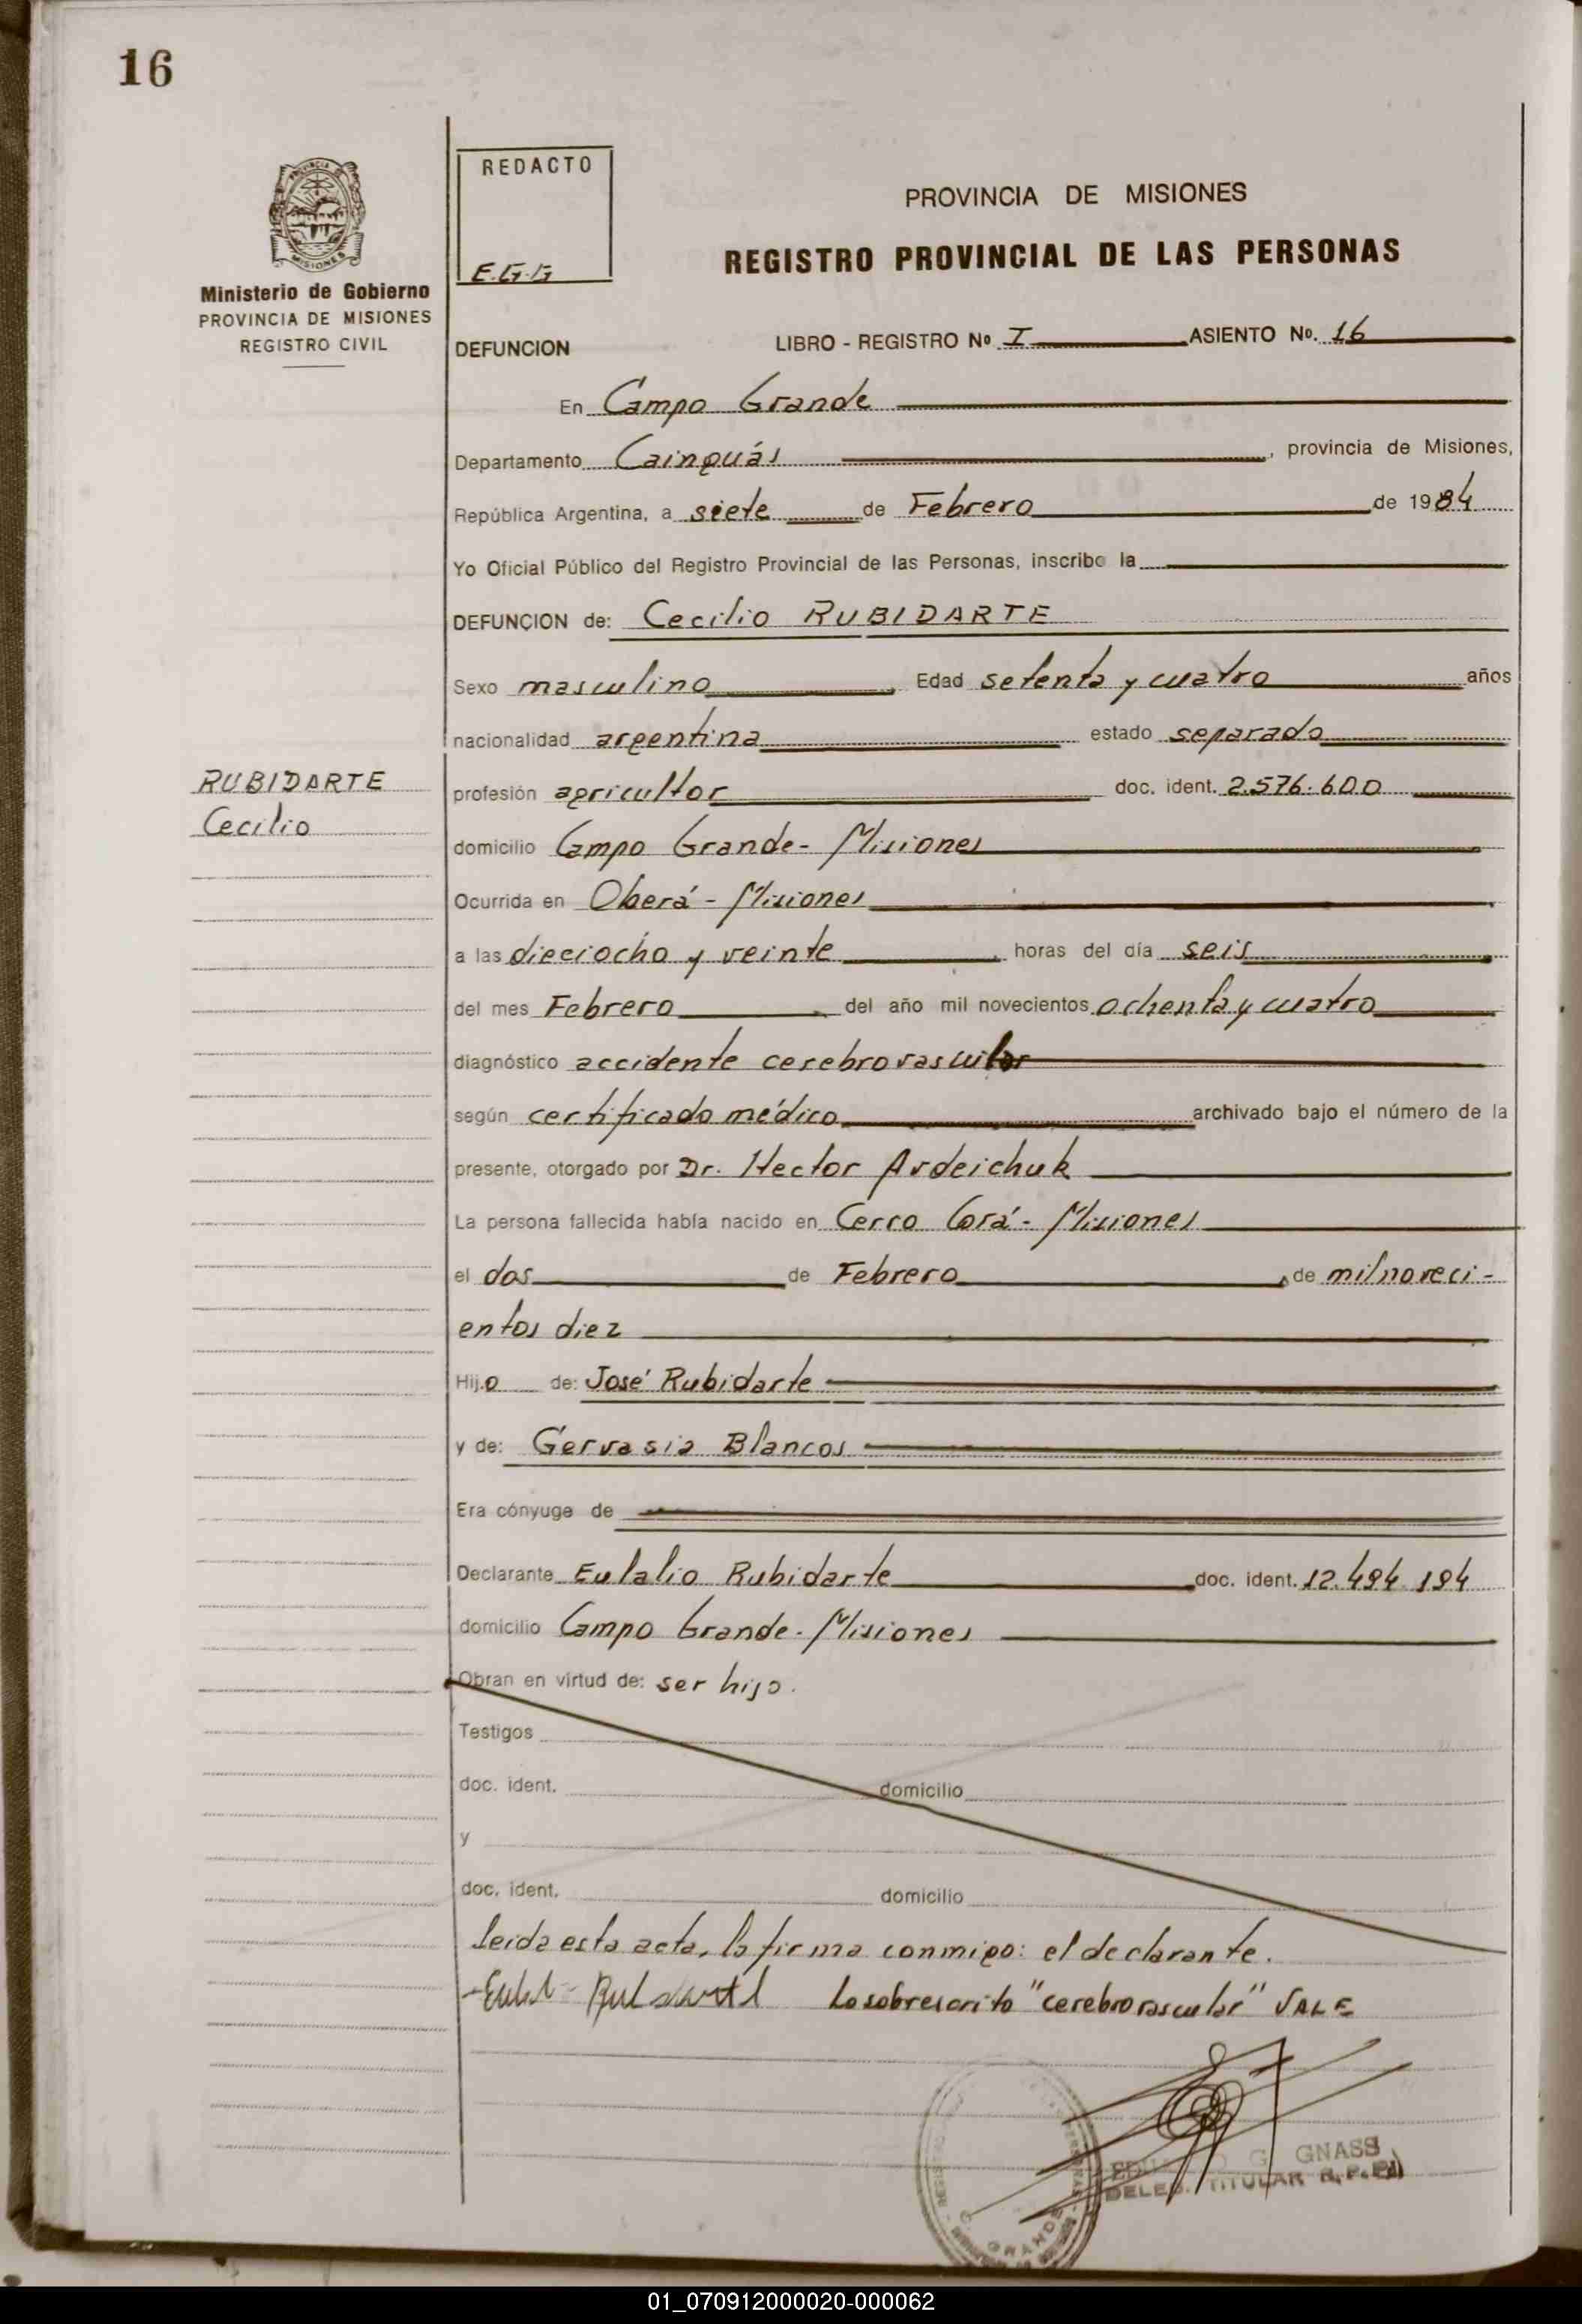 16
REDACTO
E.G.G
PROVINCIA DE MISIONES
REGISTRO PROVINCIAL DE LAS PERSONAS
Ministerio de Gobierno
PROVINCIA DE MISIONES
REGISTRO CIVIL
DEFUNCION LIBRO - REGISTRO Nº I ASIENTO Nº. 16
En Campo Grande
Departamento Cainguás, provincia de Misiones,
República Argentina, a siete de Febrero de 1984
Yo Oficial Público del Registro Provincial de las Personas, inscribo la
DEFUNCION de: Cecilio RUBIDARTE
Sexo masculino, Edad setenta y cuatro años
nacionalidad argentina estado separado
RUBIDARTE
Cecilio
profesión agricultor doc. ident. 2.576.600
domicilio Campo Grande - Misiones
Ocurrida en Oberá - Misiones
a las dieciocho y veinte, horas del día seis
del mes Febrero, del año mil novecientos ochenta y cuatro
diagnóstico accidente cerebrovascular
según certificado médico archivado bajo el número de la
presente, otorgado por Dr. Hector Avdeichuk
La persona fallecida había nacido en Cerro Corá - Misiones
el dos de Febrero, de mil noveci-
entos diez
Hijo de: José Rubidarte
y de: Gervasia Blancos
Era cónyuge de
Declarante Eulalio Rubidarte doc. ident. 12.494.194
domicilio Campo Grande - Misiones
Obran en virtud de: ser hijo.
Testigos
doc. ident. domicilio
y
doc. ident. domicilio
Leida esta acta, la firma conmigo: el declarante.
Lo sobrescrito "cerebrovascular" VALE
GRANDE
G. GNASS
DELEG. TITULAR R.P.P.
01_070912000020-000062